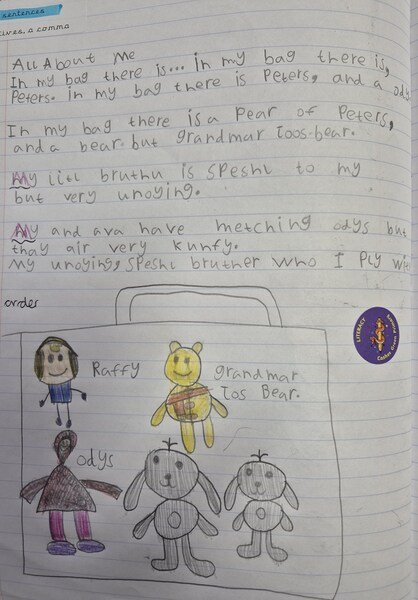 sentences
tives, a comma
All About Me
In my bag there is... in my bag there is,
Peters. in my bag there is Peters, and a odys
In my bag there is a Pear of Peters,
and a bear. but grandmar Toos-bear.
My litl bruthu is speshl to my
but very unoying.
My and ava have metching odys but
thay air very kunfy.
My unoying, speshl bruther who I Ply with
order
Raffy
grandmar
Tos Bear.
odys
LITERACY